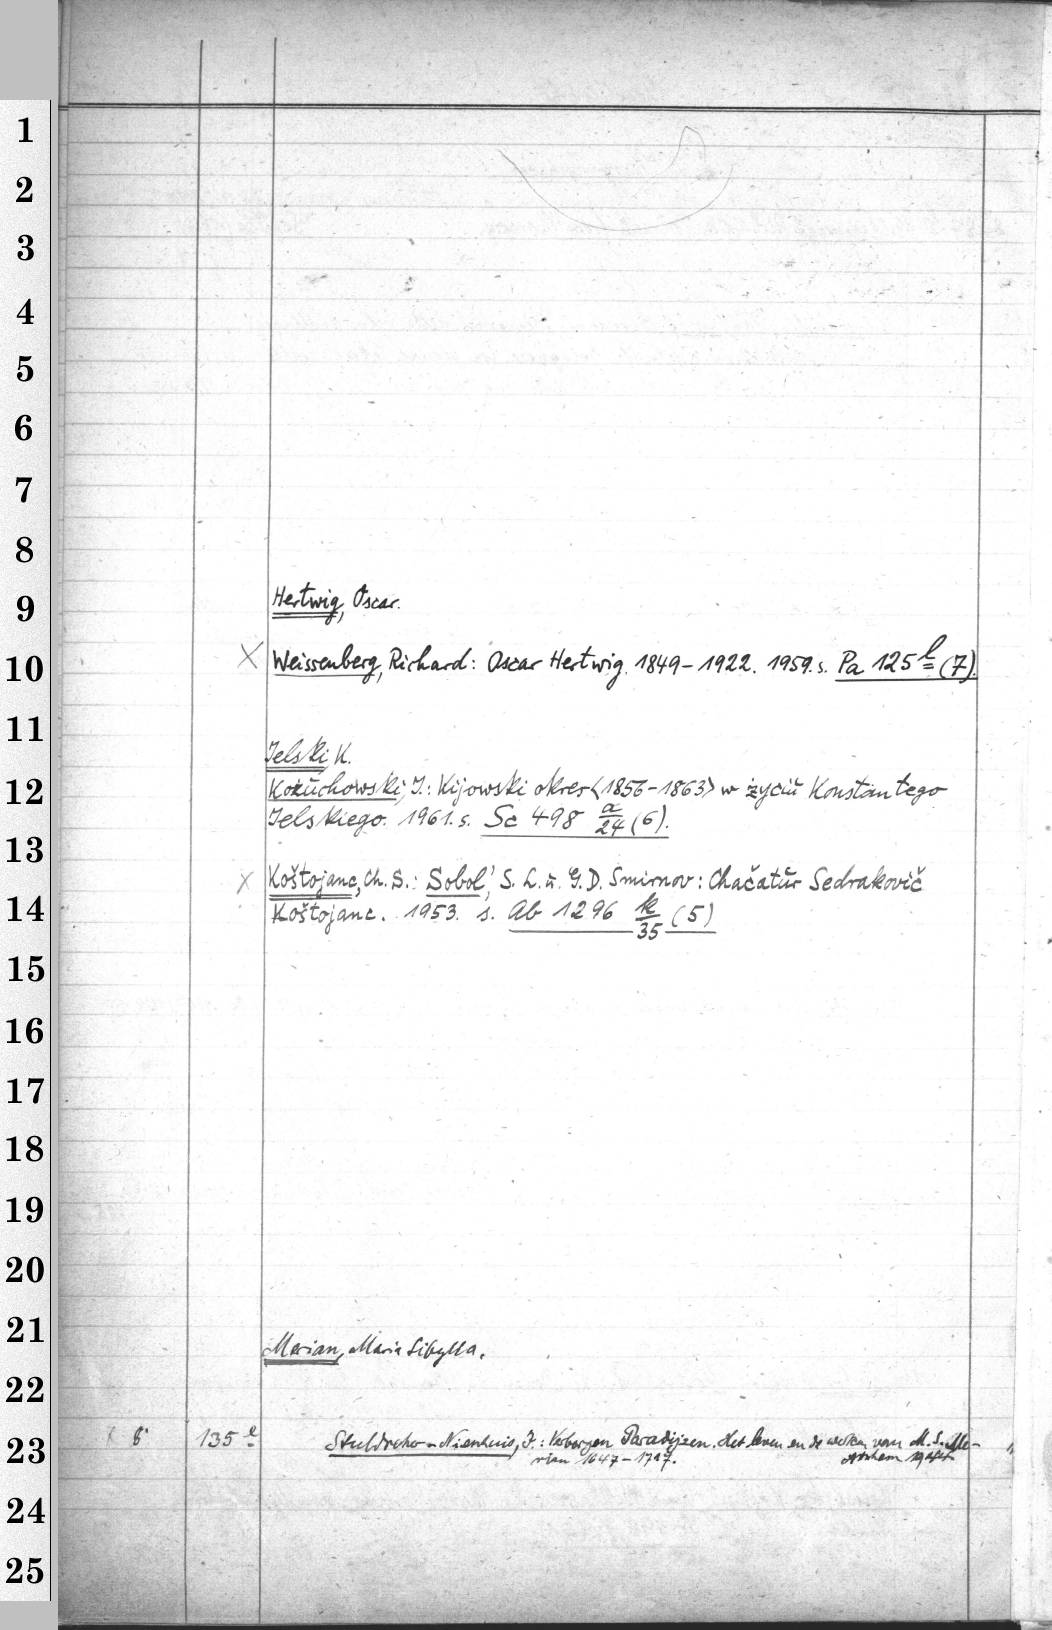 1
2
3
4
5
6
7
8
9
Hertwig, Oscar.
10
X Weissenberg, Richard: Oscar Hertwig. 1849-1922. 1959. s. Pa 125 l (7).
11
Jelski, K.
12
Kożuchowski, J.: Kijowski okres <1856-1863> w życiu Konstantego
Jelskiego. 1961. s. Sc 498 a/24 (6).
13
X Koštojanc, Ch. S.: Sobol', S. L. u. G. D. Smirnov: Chačatur Sedrakovič
14
Koštojanc. 1953. s. Ab 1296 k/35 (5)
15
16
17
18
19
20
21
Merian, Maria Sibylla.
22
23
8° 135 e Stuldreher-Nienhuis, J.: Verborgen Paradijzen. Het leven en de werken van M. S. Me-
rian 1647-1717. Arnhem 1944
24
25